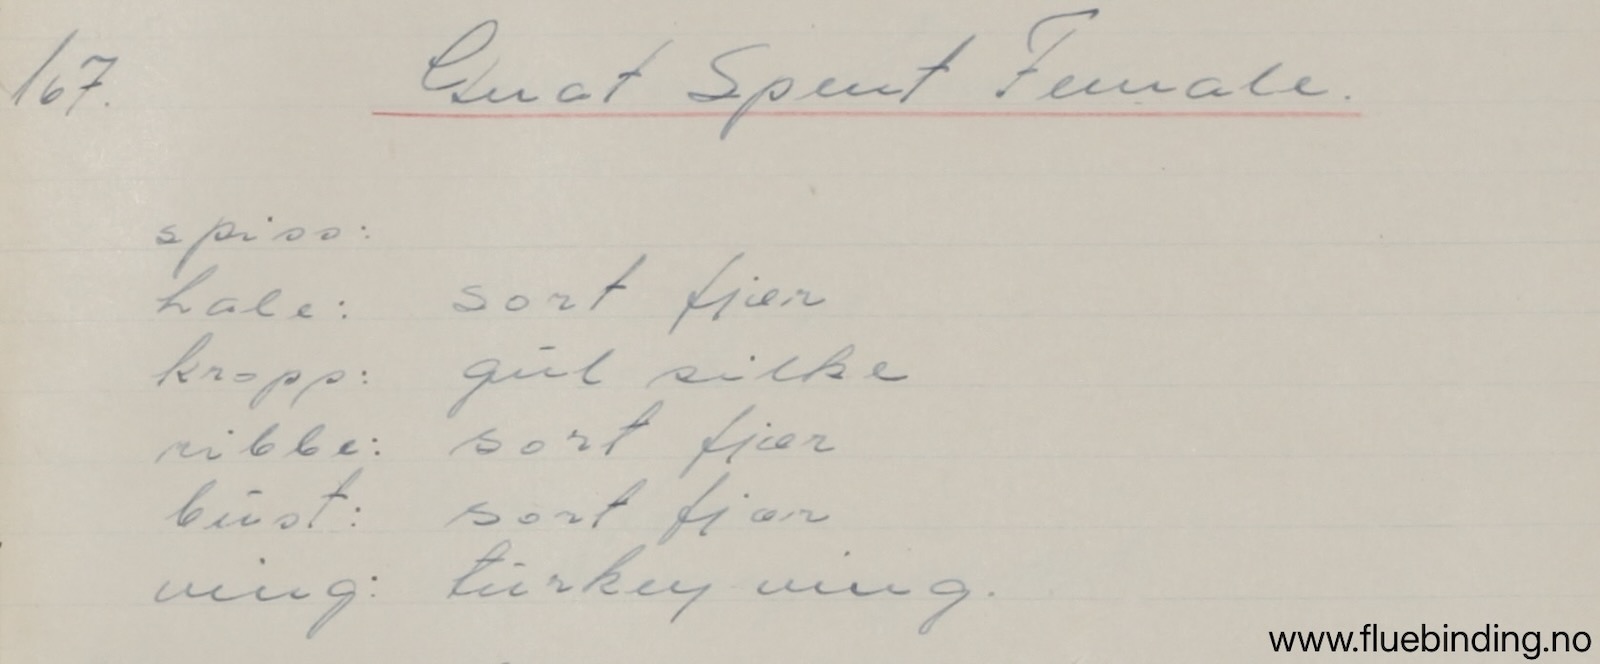 167. Gnat Spent Female.
spiss:
hale: sort fjær
kropp: gul silke
ribbe: sort fjær
bust: sort fjær
ving: turkey ving.
www.fluebinding.no